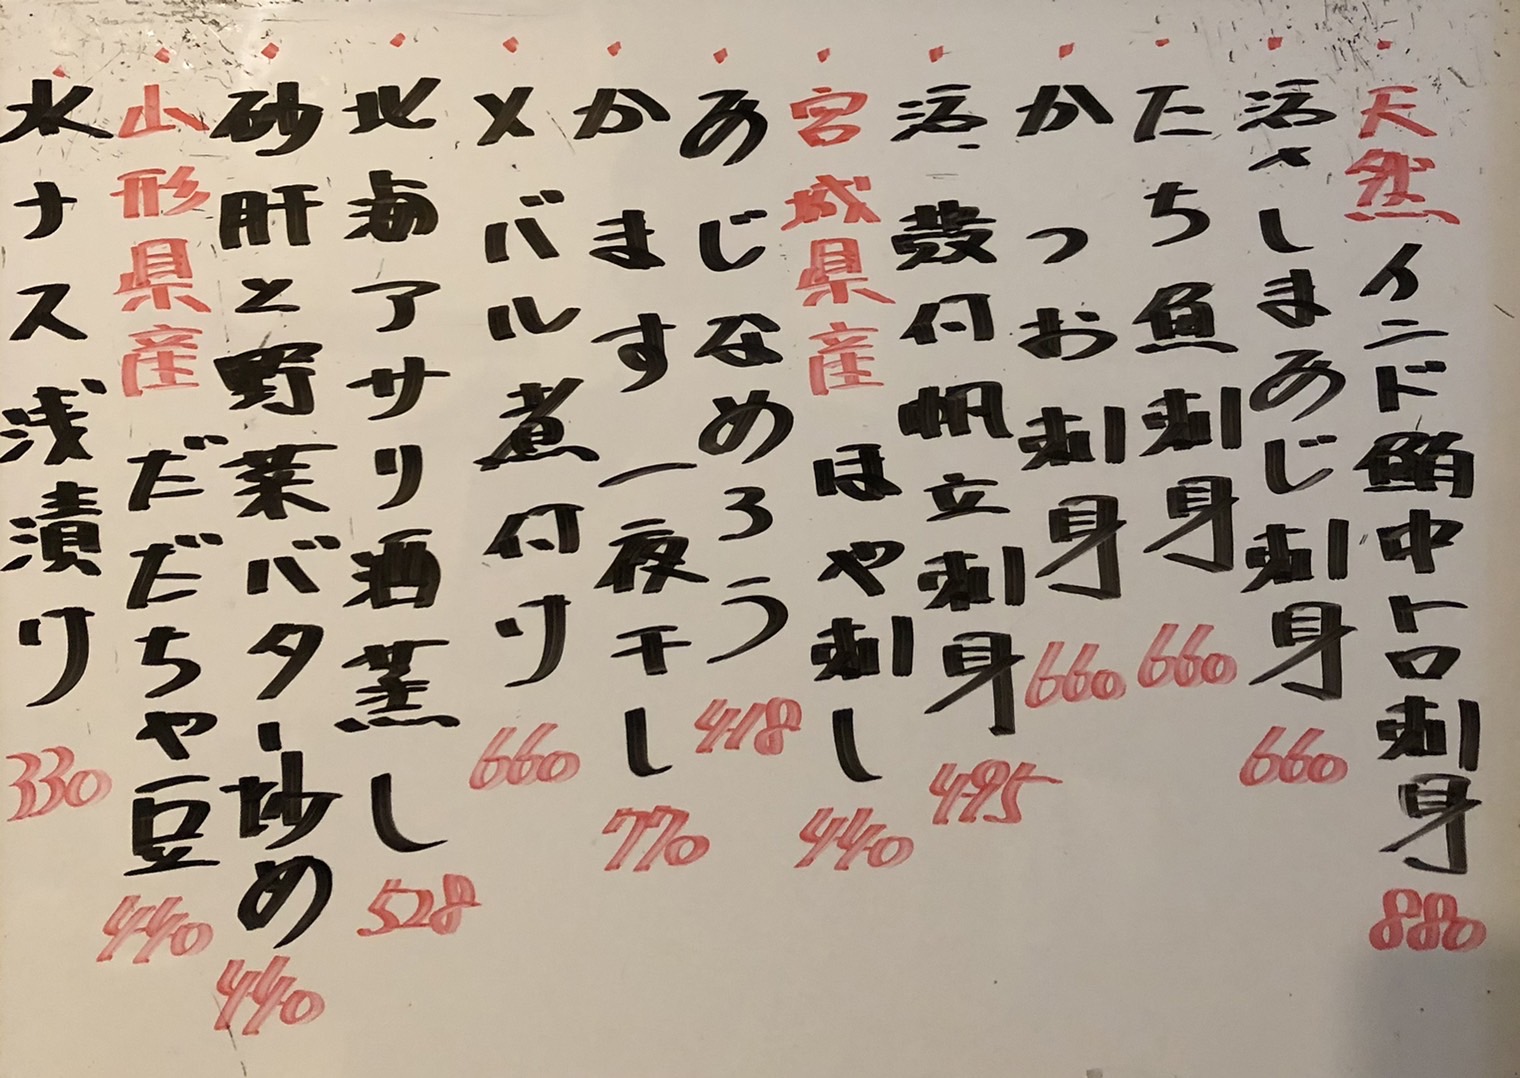 天然インド鮪中トロ刺身 880
活〆しまあじ刺身 660
たち魚刺身 660
かつお刺身 660
活殻付帆立刺身 495
宮城県産 ほや刺し 440
あじなめろう 418
かます一夜干し 770
メバル煮付け 660
北海アサリ酒蒸し 528
砂肝と野菜バター炒め 440
山形県産 だだちゃ豆 440
水ナス浅漬け 330